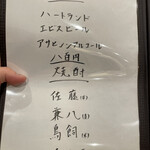 ハートランド
エビスビール
アサヒノンアルコール
八百円
焼酎
佐藤(a)
兼八(a)
鳥飼(a)